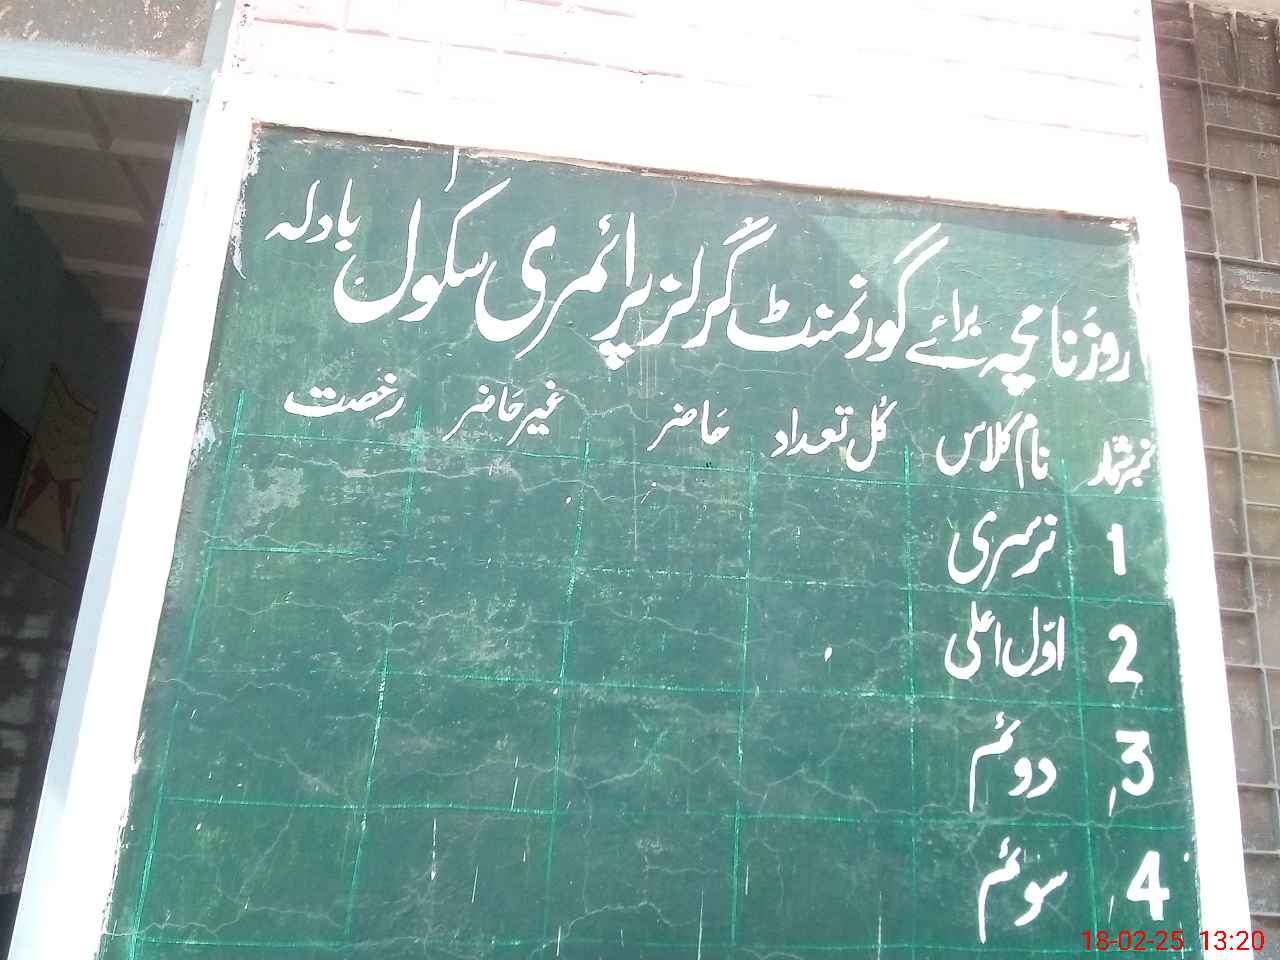 روزنامچہ برائے گورنمنٹ گرلز پرائمری سکول بادلہ
نمبر شمار نام کلاس کُل تعداد حاضر غیر حاضر رخصت
1 نرسری
2 اوّل اعلی
3 دوئم
4 سوئم
18-02-25 13:20